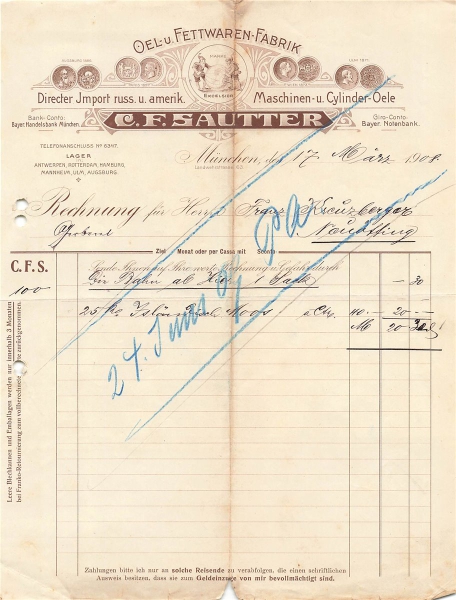 OEL- u. FETTWAREN-FABRIK
MARKE
EXCELSIOR
Directer Jmport russ. u. amerik. Maschinen- u. Cylinder-Oele
Bank-Conto:
Bayer. Handelsbank München.
C. F. SAUTTER
Giro-Conto:
Bayer. Notenbank.
TELEFONANSCHLUSS Nº 6347.
LAGER
ANTWERPEN, ROTTERDAM, HAMBURG,
MANNHEIM, ULM, AUGSBURG.
München, den 17 März 1908.
Rechnung für Herrn Franz Kreuzberger
Neuötting
Ziel Monat oder per Cassa mit Sconto
C. F. S. Sende Ihnen auf Ihre werte Rechnung u. Gefahr durch
die Bahn ab hier 1 Sack — 30
100
25 Ko Isländisch Moos a Ctr. 40.— 20 —
M 20 30
24. Juni 08
Leere Blechkannen und Emballagen werden nur innerhalb 3 Monaten
bei Franko-Retournierung zum vollberechneten zurückgenommen.
Zahlungen bitte ich nur an solche Reisende zu verabfolgen, die einen schriftlichen
Ausweis besitzen, dass sie zum Geldeinzuge von mir bevollmächtigt sind.